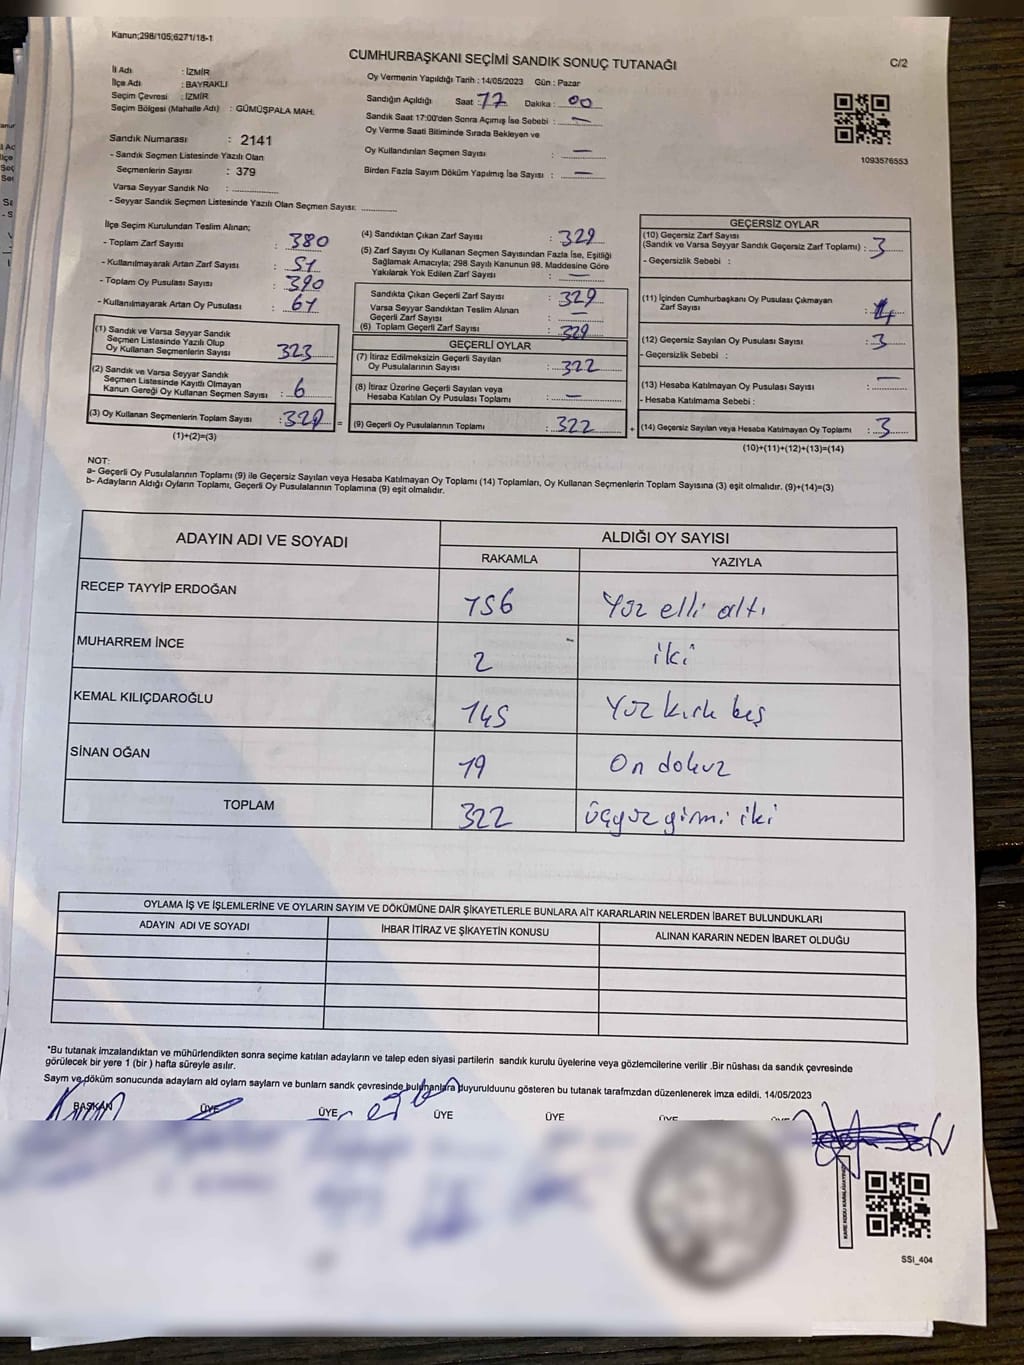 Kanun;298/105;6271/18-1
CUMHURBAŞKANI SEÇİMİ SANDIK SONUÇ TUTANAĞI
C/2
İl Adı : İZMİR
İlçe Adı : BAYRAKLI
Seçim Çevresi : İZMİR
Seçim Bölgesi (Mahalle Adı) : GÜMÜŞPALA MAH.
Sandık Numarası : 2141
- Sandık Seçmen Listesinde Yazılı Olan
Seçmenlerin Sayısı : 379
Varsa Seyyar Sandık No : ..............
- Seyyar Sandık Seçmen Listesinde Yazılı Olan Seçmen Sayısı: ............
Oy Vermenin Yapıldığı Tarih : 14/05/2023 Gün : Pazar
Sandığın Açıldığı Saat : 17 Dakika : 00
Sandık Saat 17:00'den Sonra Açımış İse Sebebi : —
Oy Verme Saati Bitiminde Sırada Bekleyen ve
Oy Kullandırılan Seçmen Sayısı : —
Birden Fazla Sayım Döküm Yapılmış İse Sayısı : —
1093576553
İlçe Seçim Kurulundan Teslim Alınan;
- Toplam Zarf Sayısı : 380
- Kullanılmayarak Artan Zarf Sayısı : 51
- Toplam Oy Pusulası Sayısı : 390
- Kullanılmayarak Artan Oy Pusulası : 61
(1) Sandık ve Varsa Seyyar Sandık
Seçmen Listesinde Yazılı Olup
Oy Kullanan Seçmenlerin Sayısı : 323
(2) Sandık ve Varsa Seyyar Sandık
Seçmen Listesinde Kayıtlı Olmayan
Kanun Gereği Oy Kullanan Seçmen Sayısı : 6
(3) Oy Kullanan Seçmenlerin Toplam Sayısı : 329 =
(1)+(2)=(3)
(4) Sandıktan Çıkan Zarf Sayısı : 329
(5) Zarf Sayısı Oy Kullanan Seçmen Sayısından Fazla İse, Eşitliği
Sağlamak Amacıyla; 298 Sayılı Kanunun 98. Maddesine Göre
Yakılarak Yok Edilen Zarf Sayısı : —
Sandıkta Çıkan Geçerli Zarf Sayısı : 329
Varsa Seyyar Sandıktan Teslim Alınan
Geçerli Zarf Sayısı : —
(6) Toplam Geçerli Zarf Sayısı : 329
GEÇERLİ OYLAR
(7) İtiraz Edilmeksizin Geçerli Sayılan
Oy Pusulalarının Sayısı : 322
(8) İtiraz Üzerine Geçerli Sayılan veya
Hesaba Katılan Oy Pusulası Toplamı : —
(9) Geçerli Oy Pusulalarının Toplamı : 322 +
GEÇERSİZ OYLAR
(10) Geçersiz Zarf Sayısı
(Sandık ve Varsa Seyyar Sandık Geçersiz Zarf Toplamı) : 3
- Geçersizlik Sebebi :
(11) İçinden Cumhurbaşkanı Oy Pusulası Çıkmayan
Zarf Sayısı :
(12) Geçersiz Sayılan Oy Pusulası Sayısı : 3
- Geçersizlik Sebebi :
(13) Hesaba Katılmayan Oy Pusulası Sayısı : —
- Hesaba Katılmama Sebebi :
(14) Geçersiz Sayılan veya Hesaba Katılmayan Oy Toplamı : 3
(10)+(11)+(12)+(13)=(14)
NOT:
a- Geçerli Oy Pusulalarının Toplamı (9) ile Geçersiz Sayılan veya Hesaba Katılmayan Oy Toplamı (14) Toplamları, Oy Kullanan Seçmenlerin Toplam Sayısına (3) eşit olmalıdır. (9)+(14)=(3)
b- Adayların Aldığı Oyların Toplamı, Geçerli Oy Pusulalarının Toplamına (9) eşit olmalıdır.
ADAYIN ADI VE SOYADI ALDIĞI OY SAYISI
RAKAMLA YAZIYLA
RECEP TAYYİP ERDOĞAN 156 Yüz elli altı
MUHARREM İNCE 2 iki
KEMAL KILIÇDAROĞLU 145 Yüz kırk beş
SİNAN OĞAN 19 On dokuz
TOPLAM 322 üçyüz yirmi iki
OYLAMA İŞ VE İŞLEMLERİNE VE OYLARIN SAYIM VE DÖKÜMÜNE DAİR ŞİKAYETLERLE BUNLARA AİT KARARLARIN NELERDEN İBARET BULUNDUKLARI
ADAYIN ADI VE SOYADI İHBAR İTİRAZ VE ŞİKAYETİN KONUSU ALINAN KARARIN NEDEN İBARET OLDUĞU
*Bu tutanak imzalandıktan ve mühürlendikten sonra seçime katılan adayların ve talep eden siyasi partilerin sandık kurulu üyelerine veya gözlemcilerine verilir .Bir nüshası da sandık çevresinde
görülecek bir yere 1 (bir ) hafta süreyle asılır.
Sayım ve döküm sonucunda adayların ald oyların sayları ve bunların sandk çevresinde bulunanlara duyurulduunu gösteren bu tutanak tarafmzdan düzenlenerek imza edildi. 14/05/2023
BAŞKAN ÜYE ÜYE ÜYE ÜYE ÜYE
SSI_404